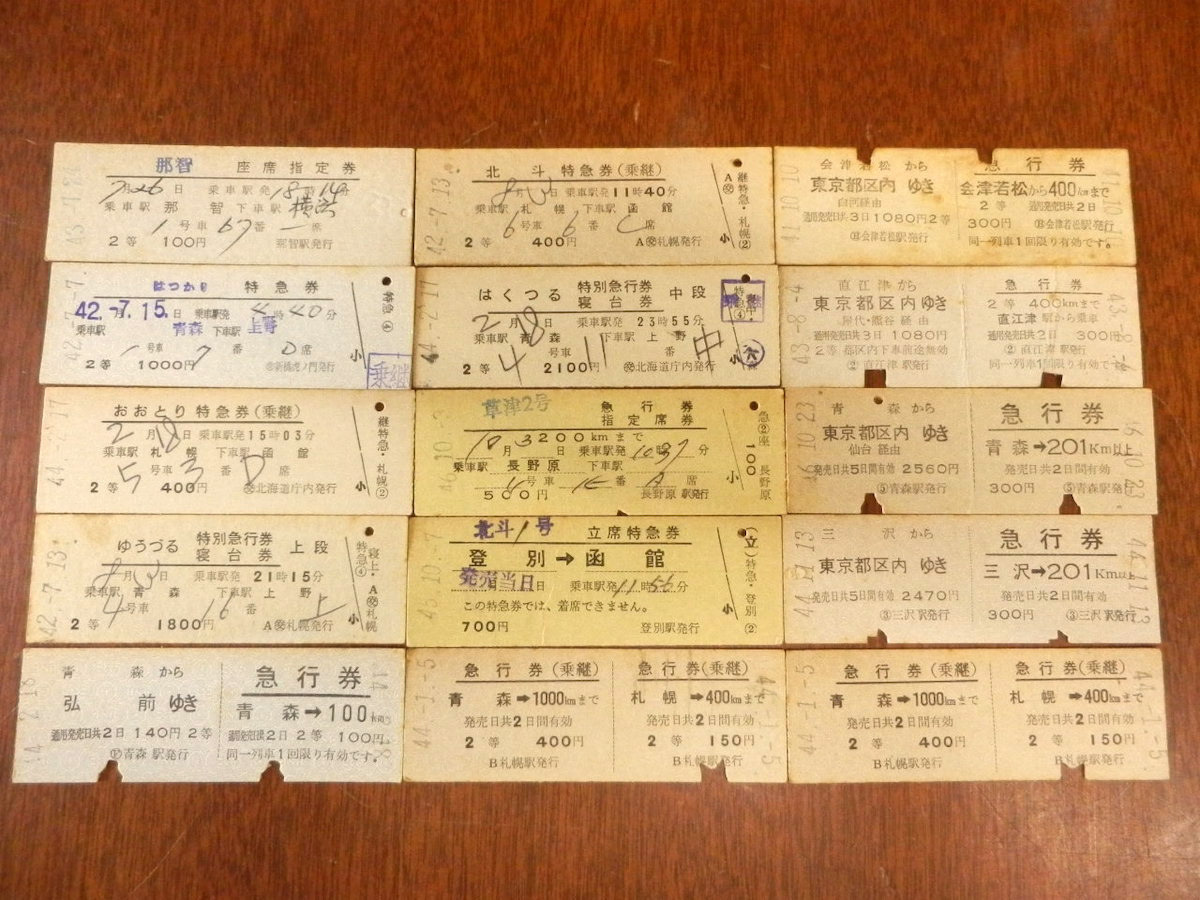 那智 座席指定券
7月26日 乗車駅発18時14分
乗車駅 那智 下車駅 横浜
1号車 67番 席
2等 100円 那智駅発行
北斗 特急券(乗継)
8月3日 乗車駅発11時40分
乗車駅 札幌 下車駅 函館
6号車 6番 C席
2等 400円 A札幌発行
42-7.13
継特急・札幌(2)
小
会津若松 から
東京都区内 ゆき
白河経由
通用発売日共3日 1080円 2等
会津若松駅発行
急行券
会津若松から400kmまで
2等 通用発売日共2日
300円 会津若松駅発行
同一列車1回限り有効です。
41.10.10
はつかり 特急券
42.-7.15. 乗車駅発 4時40分
乗車駅 青森 下車駅 上野
1号車 7番 D席
2等 1000円 新橋虎ノ門発行
特急④
小
乗継
はくつる 特別急行券 寝台券 中段
2月18日 乗車駅発23時55分
乗車駅 青森 下車駅 上野
4号車 11番 中
2等 2100円 北海道庁内発行
44.-2.17
小
直江津から
東京都区内 ゆき
屋代・熊谷 経由
通用発売日共3日 1080円
2等 都区内下車前途無効
② 直江津 駅発行
急行券
2等 400kmまで
直江津 駅から乗車
通用発売日共2日 300円
② 直江津 駅発行
同一列車1回限り有効です
43-8-4
おおとり 特急券(乗継)
2月18日 乗車駅発15時03分
乗車駅 札幌 下車駅 函館
5号車 3番 D席
2等 400円 北海道庁内発行
継特急・札幌②
小
草津2号 急行券 指定席券
10月3 200kmまで
乗車駅発10時37分
乗車駅 長野原 下車駅
番 A席
500円 長野原 駅発行
急②座 100 長野原
小
青森から
東京都区内 ゆき
仙台 経由
発売日共5日間有効 2560円
⑤青森駅発行
急行券
青森→201Km以上
発売日共2日間有効
300円 ⑤青森駅発行
46.10.23
ゆうづる 特別急行券 寝台券 上段
8月3日 乗車駅発21時15分
乗車駅 青森 下車駅 上野
4号車 16番 上
2等 1800円 A札幌発行
42-7.13
特急④
寝上・A札幌
小
北斗1号 立席特急券
登別→函館
発売当日 日 乗車駅発11時56分
この特急券では、着席できません。
700円 登別駅発行
(立)特急・登別②
小
三沢から
東京都区内 ゆき
発売日共5日間有効 2470円
③三沢駅発行
急行券
三沢→201Km以上
発売日共2日間有効
300円 ③三沢駅発行
44.11.13
青森から
弘前ゆき
通用発売日共2日 140円 2等
青森駅発行
急行券
青森→100km
通用発売日共2日 2等 100円
同一列車1回限り有効です。
急行券(乗継)
青森→1000kmまで
発売日共2日間有効
2等 400円
B札幌駅発行
急行券(乗継)
札幌→400kmまで
発売日共2日間有効
2等 150円
B札幌駅発行
44.-1.-5
急行券(乗継)
青森→1000kmまで
発売日共2日間有効
2等 400円
B札幌駅発行
急行券(乗継)
札幌→400kmまで
発売日共2日間有効
2等 150円
B札幌駅発行
44.-1.-5